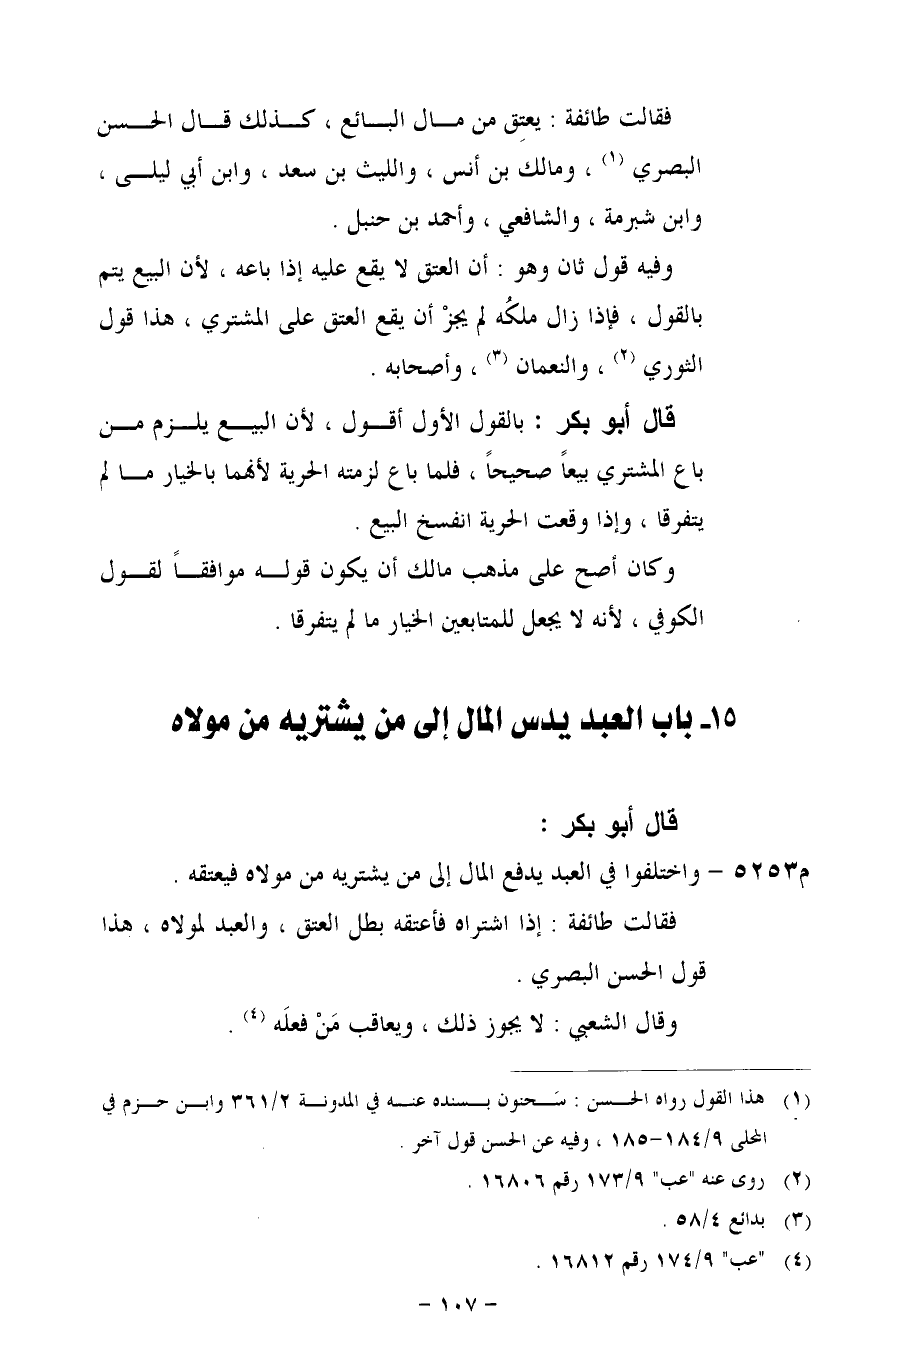 فقالت طائفة : يعتق من مال البائع ، كذلك قال الحسن
البصري (١) ، ومالك بن أنس ، والليث بن سعد ، وابن أبي ليلى ،
وابن شبرمة ، والشافعي ، وأحمد بن حنبل .
وفيه قول ثان وهو : أن العتق لا يقع عليه إذا باعه ، لأن البيع يتم
بالقول ، فإذا زال ملكُه لم يجزْ أن يقع العتق على المشتري ، هذا قول
الثوري (٢) ، والنعمان (٣) ، وأصحابه .
قال أبو بكر : بالقول الأول أقول ، لأن البيع يلزم من
باع المشتري بيعاً صحيحاً ، فلما باع لزمته الحرية لأنهما بالخيار ما لم
يتفرقا ، وإذا وقعت الحرية انفسخ البيع .
وكان أصح على مذهب مالك أن يكون قوله موافقاً لقول
الكوفي ، لأنه لا يجعل للمتابعين الخيار ما لم يتفرقا .
١٥ـ باب العبد يدس المال إلى من يشتريه من مولاه
قال أبو بكر :
م٥٢٥٣ – واختلفوا في العبد يدفع المال إلى من يشتريه من مولاه فيعتقه .
فقالت طائفة : إذا اشتراه فأعتقه بطل العتق ، والعبد لمولاه ، هذا
قول الحسن البصري .
وقال الشعبي : لا يجوز ذلك ، ويعاقب مَنْ فعلَه (٤) .
(١) هذا القول رواه الحسن : سَحنون بسنده عنه في المدونة ٣٦١/٢ وابن حزم في
المحلى ١٨٤/٩-١٨٥ ، وفيه عن الحسن قول آخر .
(٢) روى عنه "عب" ١٧٣/٩ رقم ١٦٨٠٦ .
(٣) بدائع ٥٨/٤ .
(٤) "عب" ١٧٤/٩ رقم ١٦٨١٢ .
– ١٠٧ –